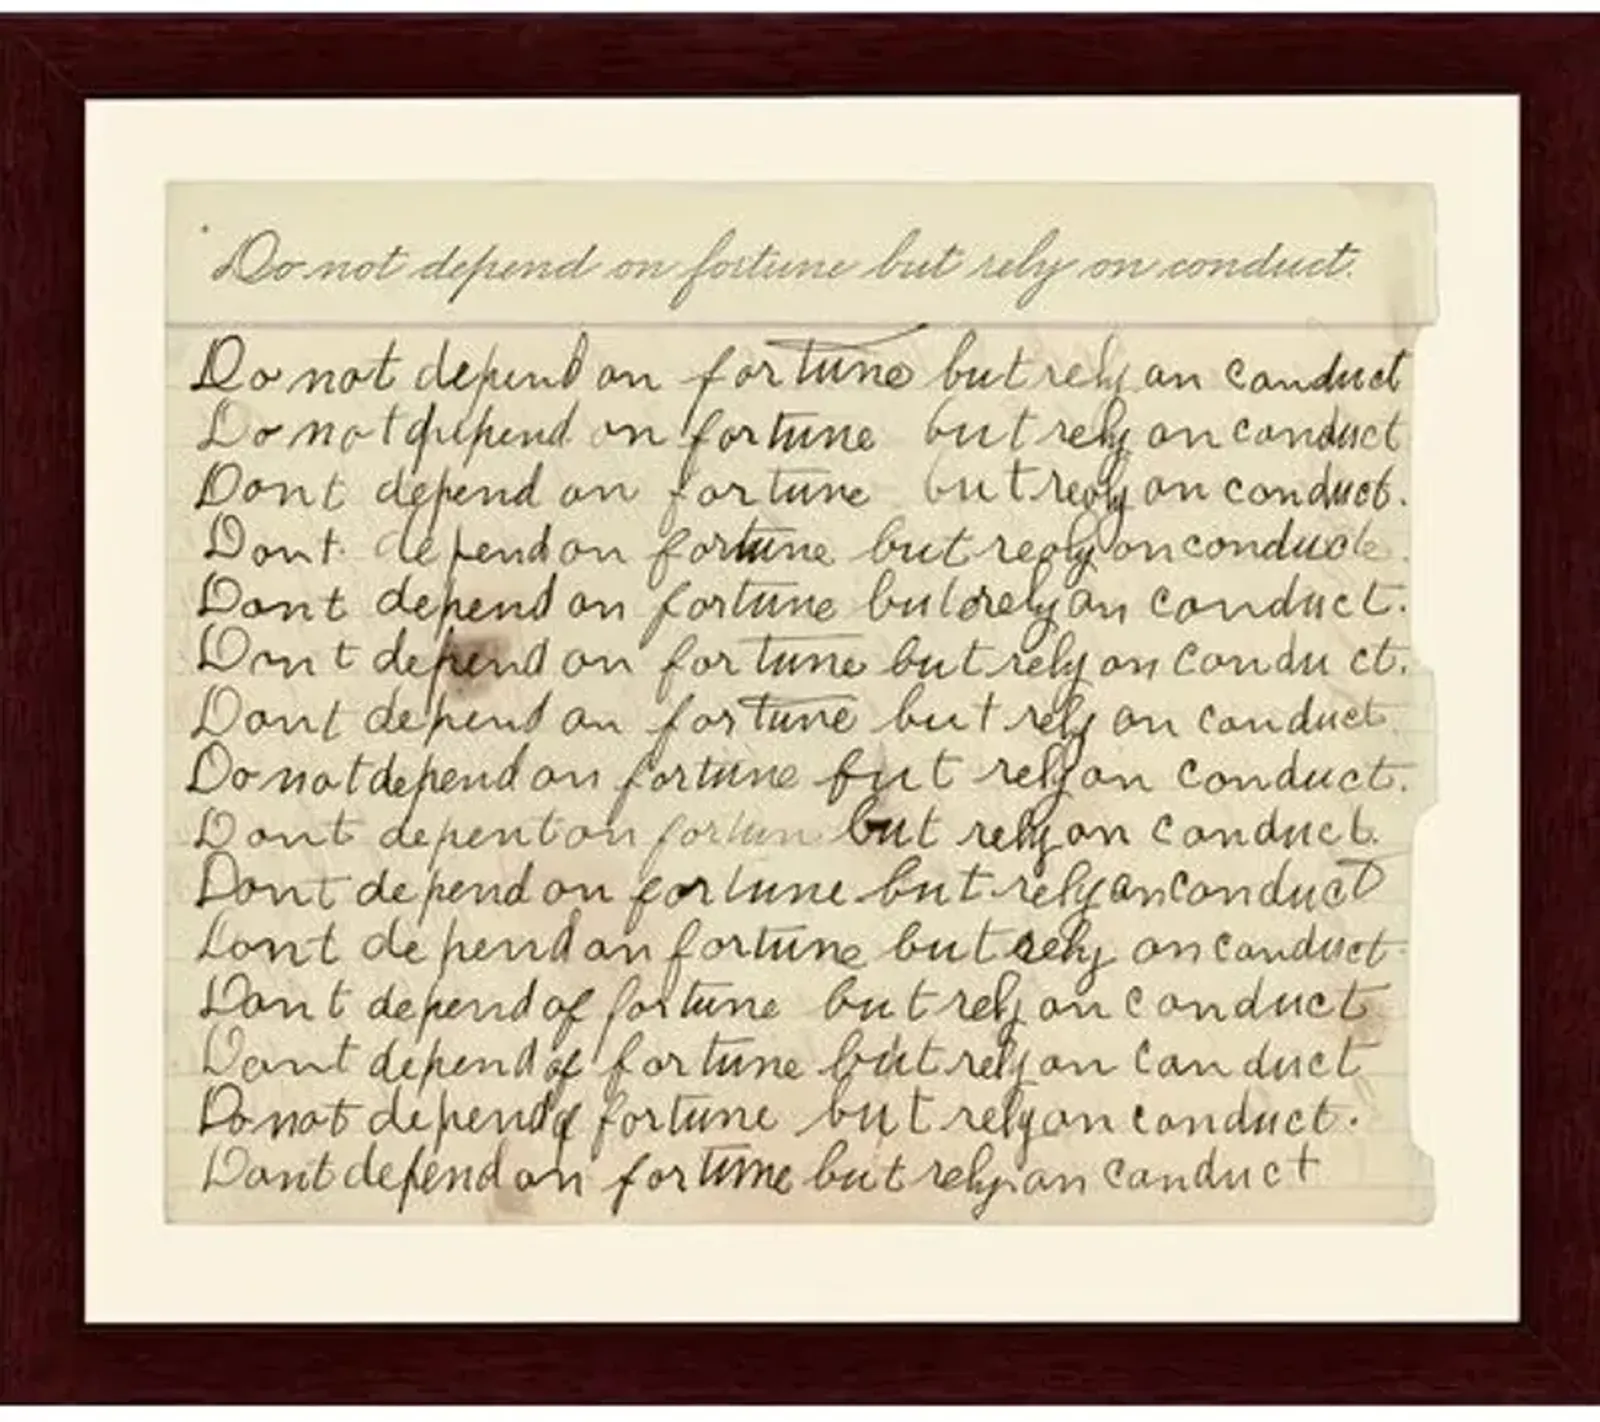 Do not depend on fortune but rely on conduct.
Do not depend on fortune but rely on conduct
Do not depend on fortune but rely on conduct
Dont depend on fortune but reoly on conduct.
Dont depend on fortune but reoly on conduct
Dont depend on fortune but rely on conduct.
Dont depend on fortune but rely on conduct.
Dont depend on fortune but rely on conduct
Do not depend on fortune but rely on conduct.
Dont depent on fortun but rely on conduct.
Dont depend on fortune but rely on conduct
Dont depend on fortune but rely on conduct
Dont depend of fortune but rely on conduct
Dont depend of fortune but rely on conduct
Do not depend of fortune but rely on conduct.
Dont depend on fortune but rely on conduct